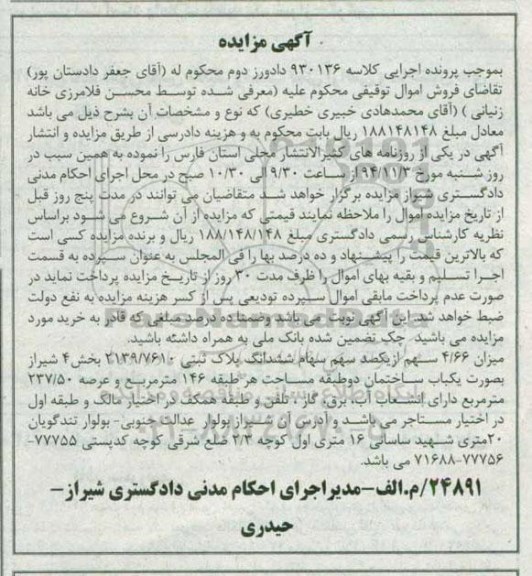 آگهی مزایده
بموجب پرونده اجرایی کلاسه ۹۳۰۱۳۶ دادورز دوم محکوم له (آقای جعفر دادستان پور)
تقاضای فروش اموال توقیفی محکوم علیه (معرفی شده توسط محسن فلامرزی خانه
زنیانی ) (آقای محمدهادی خبیری خطیری) که نوع و مشخصات آن بشرح ذیل می باشد
معادل مبلغ ۱۸۸۱۴۸۱۴۸ ریال بابت محکوم به و هزینه دادرسی از طریق مزایده و انتشار
آگهی در یکی از روزنامه های کثیرالانتشار محلی استان فارس را نموده به همین سبب در
روز شنبه مورخ ۹۴/۱۱/۳ از ساعت ۹/۳۰ الی ۱۰/۳۰ صبح در محل اجرای احکام مدنی
دادگستری شیراز مزایده برگزار خواهد شد متقاضیان می توانند در مدت پنج روز قبل
از تاریخ مزایده اموال را ملاحظه نمایند قیمتی که مزایده از آن شروع می شود براساس
نظریه کارشناس رسمی دادگستری مبلغ ۱۸۸/۱۴۸/۱۴۸ ریال و برنده مزایده کسی است
که بالاترین قیمت را پیشنهاد و ده درصد بها را فی المجلس به عنوان سپرده به قسمت
اجرا تسلیم و بقیه بهای اموال را ظرف مدت ۳۰ روز از تاریخ مزایده پرداخت نماید در
صورت عدم پرداخت مابقی اموال سپرده تودیعی پس از کسر هزینه مزایده به نفع دولت
ضبط خواهد شد. این آگهی نوبت می باشد وضمنا ده درصد مبلغی که قادر به خرید مورد
مزایده می باشید چک تضمین شده بانک ملی به همراه داشته باشید.
میزان ۴/۶۶ سهم ازیکصد سهم سهام ششدانگ پلاک ثبتی ۲۱۳۹/۷۶۱۰ بخش۴ شیراز
بصورت یکباب ساختمان دوطبقه مساحت هر طبقه ۱۴۶ مترمربع و عرصه ۲۳۷/۵۰
مترمربع دارای انشعاب آب، برق، گاز، تلفن و طبقه همکف در اختیار مالک و طبقه اول
در اختیار مستاجر می باشد و آدرس آن شیراز بولوار عدالت جنوبی- بولوار تندگویان
۲۰متری شهید ساسانی ۱۶ متری اول کوچه ۲/۳ ضلع شرقی کوچه کدپستی ۷۷۷۵۵-
۷۱۶۸۸-۷۷۷۵۶ می باشد.
۲۴۸۹۱/م.الف-مدیراجرای احکام مدنی دادگستری شیراز-
حیدری